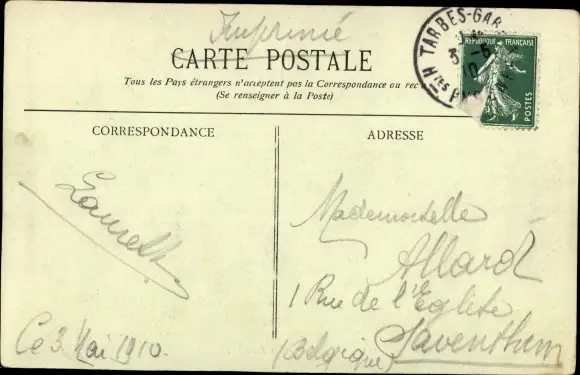 Imprimé
CARTE POSTALE
Tous les Pays étrangers n'acceptent pas la Correspondance au rec
(Se renseigner à la Poste)
TARBES-GAR
Htes
10
RÉPUBLIQUE FRANÇAISE
POSTES
CORRESPONDANCE
ADRESSE
Mademoiselle
Allard
1 Rue de l'Eglise
Saventhem
(Belgique)
Ce 3 Mai 1910.